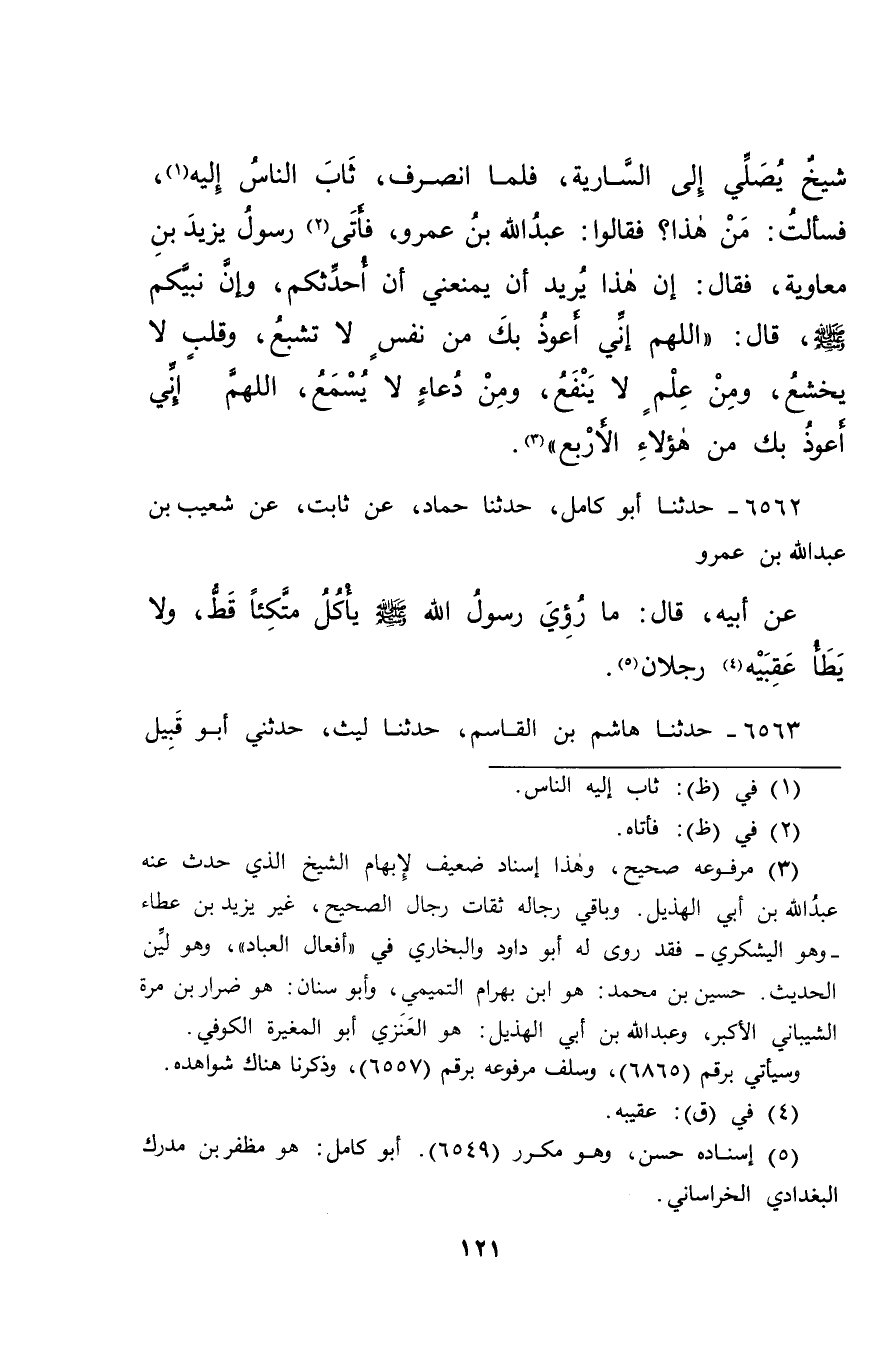 شيخٌ يُصَلِّي إِلى السَّارية، فلمـا انصـرف، ثَابَ الناسُ إِليه(١)،
فسألتُ: مَنْ هٰذا؟ فقالوا: عبدُالله بنُ عمرو، فأَتَى(٢) رسولُ يزيدَ بنِ
معاوية، فقال: إن هٰذا يُريد أن يمنعني أن أُحدِّثكم، وإنَّ نبيَّكم
ﷺ، قال: «اللهم إنِّي أَعوذُ بكَ من نفسٍ لا تشبعُ، وقلبٍ لا
يخشعُ، ومِنْ عِلْمٍ لا يَنْفَعُ، ومِنْ دُعاءٍ لا يُسْمَعُ، اللهمَّ إِنِّي
أَعوذُ بك من هٰؤلاءِ الأَرْبع»(٣).
٦٥٦٢ ـ حدثنـا أبو كامل، حدثنا حماد، عن ثابت، عن شعيب بن
عبدالله بن عمرو
عن أبيه، قال: ما رُؤِيَ رسولُ الله ﷺ يأْكُلُ متَّكِئاً قَطُّ، ولا
يَطَأُ عَقِبَيْه(٤) رجلان(٥).
٦٥٦٣ ـ حدثنـا هاشم بن القـاسم، حدثنـا ليث، حدثني أبـو قَبِيل
(١) في (ظ): ثاب إليه الناس.
(٢) في (ظ): فأتاه.
(٣) مرفـوعه صحيح، وهٰذا إسناد ضعيف لإِبهام الشيخ الذي حدث عنه
عبدُالله بن أبي الهذيل. وباقي رجاله ثقات رجال الصحيح، غير يزيد بن عطاء
ـ وهو اليشكري ـ فقد روى له أبو داود والبخاري في «أفعال العباد»، وهو ليِّن
الحديث. حسين بن محمد: هو ابن بهرام التميمي، وأبو سنان: هو ضرار بن مرة
الشيباني الأكبر، وعبدالله بن أبي الهذيل: هو العَنَزي أبو المغيرة الكوفي.
وسيأتي برقم (٦٨٦٥)، وسلف مرفوعه برقم (٦٥٥٧)، وذكرنا هناك شواهده.
(٤) في (ق): عقيبه.
(٥) إسنـاده حسن، وهـو مكـرر (٦٥٤٩). أبو كامل: هو مظفر بن مدرك
البغدادي الخراساني.
١٢١